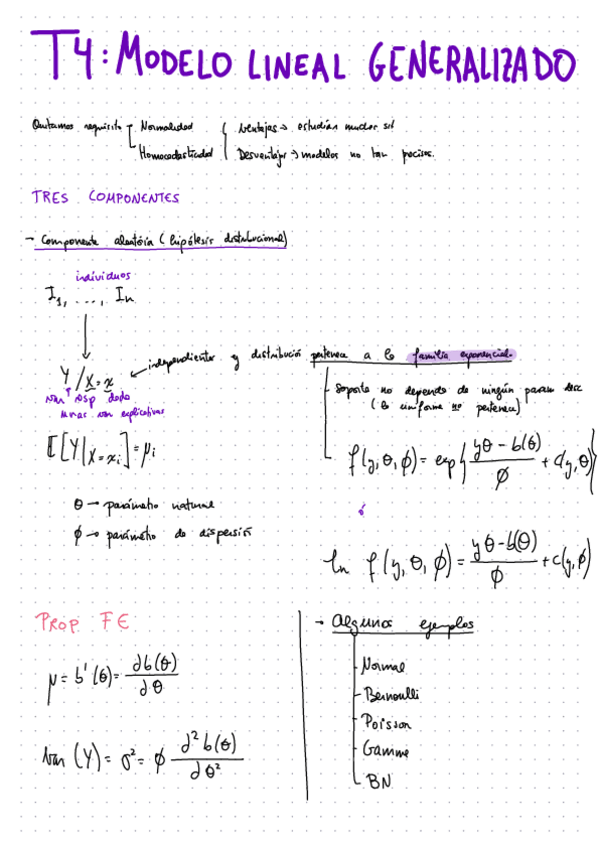 T4: MODELO LINEAL GENERALIZADO
Quitamos requisito Normalidad
Homocedasticidad
Ventajas → estudian muchas sit
Desventajas → modelos no tan precisos.
TRES COMPONENTES
- Componente aleatoria (hipótesis distribucional)
individuos
I₁, ..., Iₙ
Y/X=x ← independientes y distribución pertenece a la familia exponencial.
var resp dado
unas var explicativas
soporte no depende de ningún param desc
(la uniforme no pertenece)
E[Y|X=xᵢ]=μᵢ
f(y,θ,ϕ)=exp{(yθ-b(θ))/ϕ + c(y,θ)}
θ → parámetro natural
ó
ϕ → parámetro de dispersión
ln f(y,θ,ϕ)=(yθ-b(θ))/ϕ + c(y,ϕ)
PROP FE
μ = b'(θ) = ∂b(θ)/∂θ
Var(Y) = σ² = ϕ d²b(θ)/dθ²
- Algunos ejemplos
Normal
Bernoulli
Poisson
Gamma
BN